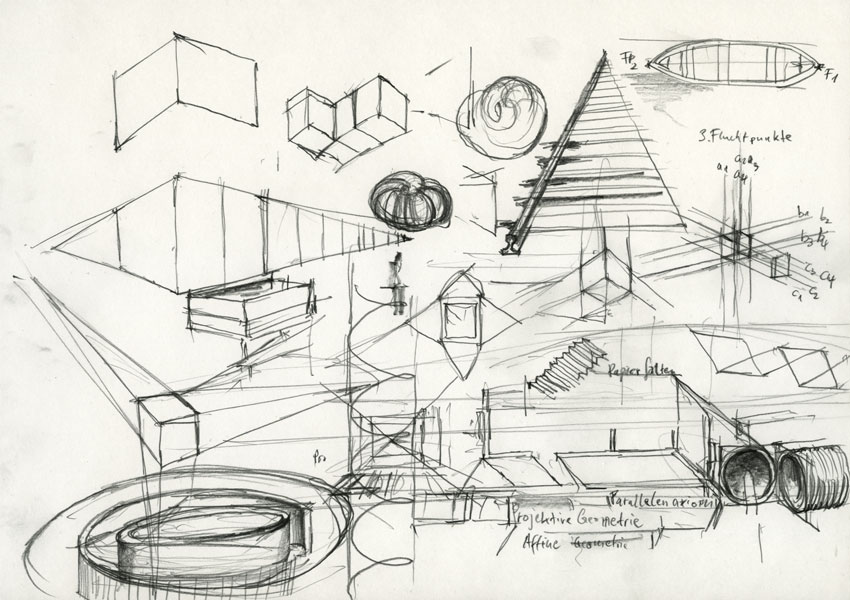 Fp2
F1
3. Fluchtpunkte
a2 a3
a1 a4
b1 b2
b3 b4
c3 c4
c1 c2
Papier falten
Parallelenaxiom
Projektive Geometrie
Affine Geometrie